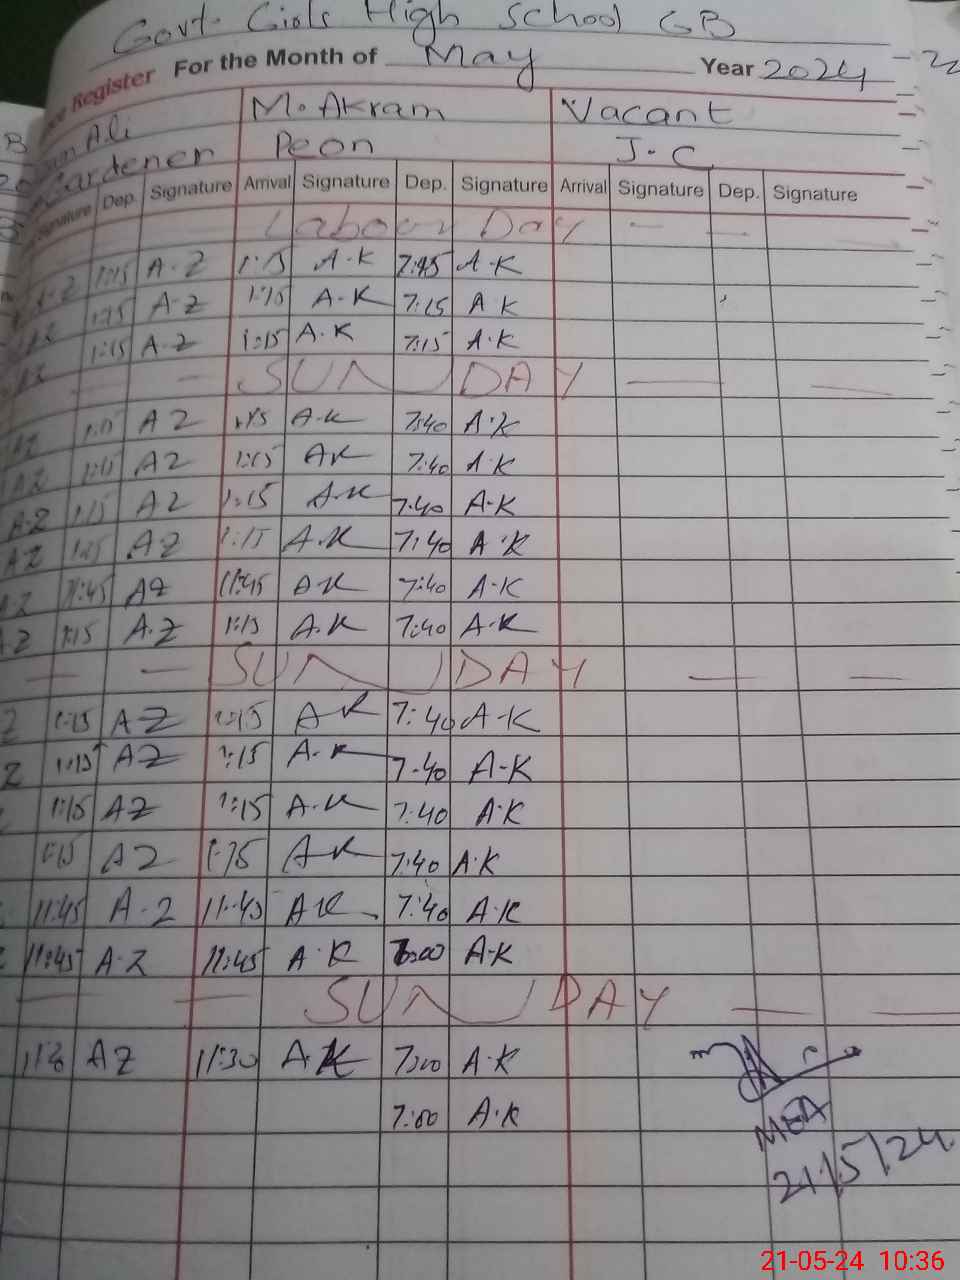 Govt. Girls High School GB
Register For the Month of May Year 2024
Ali M. Akram Vacant
Gardener Peon J.C
Signature Dep. Signature Arrival Signature Dep. Signature Arrival Signature Dep. Signature
Labour Day
A-Z 1:15 A-Z 1:15 A-K 7:45 A-K
1:15 A-Z 1:15 A-K 7:15 A K
1:15 A-Z 1:15 A.K 7:15 A.K
SUNDAY
AZ A Z 1:15 A-K 7:40 A.K
AZ 1:15 AZ 1:15 AK 7:40 A.K
A-Z 1:15 AZ 1:15 A.K 7:40 A-K
AZ 1:15 AZ 1:15 A.K 7:40 A.K
11:45 AZ 11:45 AK 7:40 A-K
Z 1:15 A.Z 1:15 A.K 7:40 A-K
SUNDAY
Z 1:15 A-Z 1:15 AK 7:40 A-K
Z 1:15 AZ 1:15 A.K 7:40 A-K
1:15 AZ 1:15 A.K 7:40 A.K
1:15 AZ 1:15 AK 7:40 A.K
11:45 A-Z 11:45 AK 7:40 A.K
11:45 A-Z 11:45 A.K 7:00 A-K
SUNDAY
AZ 11:30 A.K 7:00 A-K
7:00 A.K
MEA
21/5/24
21-05-24 10:36